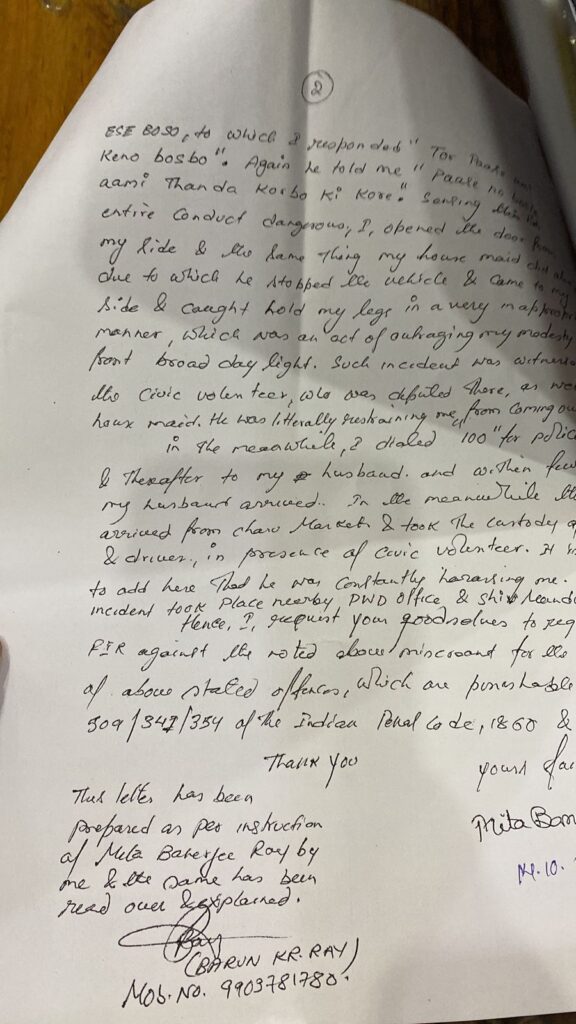 2
ESE BOSO, to which I responded " Tor Paase
Keno bosbo". Again he told me " Paase na
aami Thanda Korbo Ki Kore." Sensing
entire Conduct dangerous, I, opened the door from
my side & the same Thing my house maid did
due to which he stopped the vehicle & came to my
side & caught hold my legs in a very
manner, which was an act of outraging my modesty
front broad day light. Such incident was
the Civic volunteer, who was deputed There, as
house maid. He was litterally restraining me from coming
in the meanwhile, I dialed "100" for
& Thereafter to my husband. and within
my husband arrived. In the meanwhile
arrived from Charu Market & took The custody
& driver, in presence of Civic volunteer. It
to add here That he was Constantly harassing me.
incident took Place nearby PWD Office &
Hence, I, request your goodselves to
FIR against the noted above miscreant for the
of above stated offences, which are punishable
509/341/354 of the Indian Penal Code, 1860 &
Thank you
yours
This letter has been
prepared as per instruction
of Mita Banerjee Ray by
me & the same has been
read over & explained.
Ray
(BARUN KR. RAY)
Mob. No. 9903781780.
Mita
14.10.